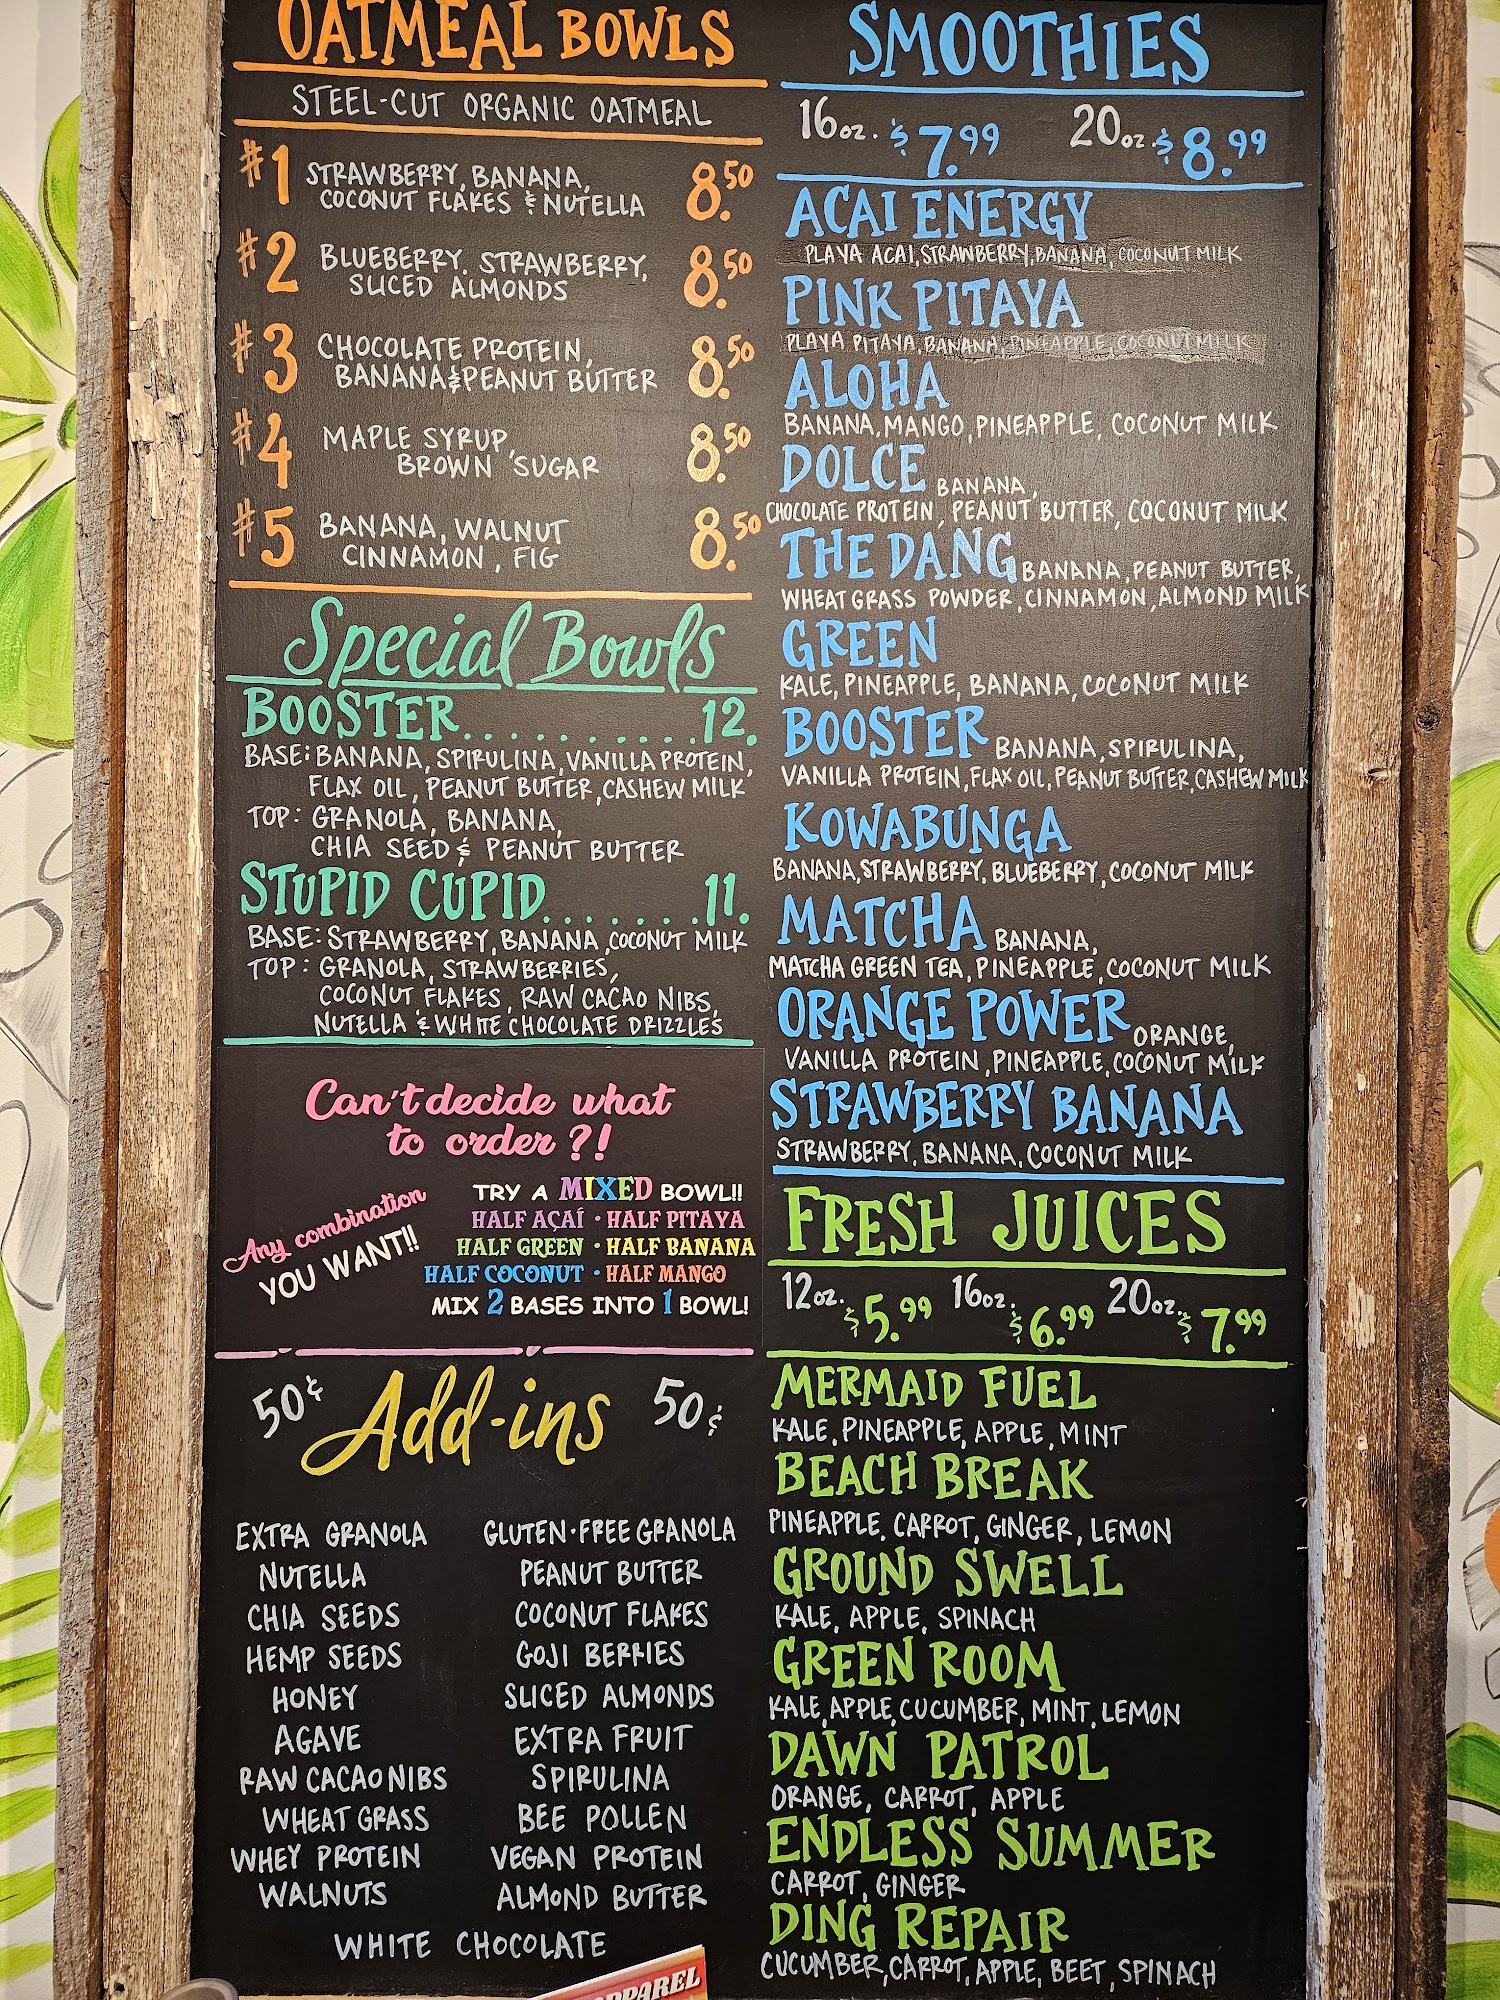 OATMEAL BOWLS
STEEL-CUT ORGANIC OATMEAL
#1 STRAWBERRY, BANANA, 8.50
COCONUT FLAKES & NUTELLA
#2 BLUEBERRY. STRAWBERRY, 8.50
SLICED ALMONDS
#3 CHOCOLATE PROTEIN, 8.50
BANANA & PEANUT BUTTER
#4 MAPLE SYRUP, 8.50
BROWN SUGAR
#5 BANANA, WALNUT 8.50
CINNAMON, FIG
Special Bowls
BOOSTER..........12.
BASE: BANANA, SPIRULINA, VANILLA PROTEIN,
FLAX OIL, PEANUT BUTTER, CASHEW MILK
TOP: GRANOLA, BANANA,
CHIA SEED & PEANUT BUTTER
STUPID CUPID.......11.
BASE: STRAWBERRY, BANANA, COCONUT MILK
TOP: GRANOLA, STRAWBERRIES,
COCONUT FLAKES, RAW CACAO NIBS,
NUTELLA & WHITE CHOCOLATE DRIZZLES
Can't decide what
to order?!
Any combination
YOU WANT!!
TRY A MIXED BOWL!!
HALF AÇAÍ · HALF PITAYA
HALF GREEN · HALF BANANA
HALF COCONUT · HALF MANGO
MIX 2 BASES INTO 1 BOWL!
50¢ Add-ins 50¢
EXTRA GRANOLA GLUTEN-FREE GRANOLA
NUTELLA PEANUT BUTTER
CHIA SEEDS COCONUT FLAKES
HEMP SEEDS GOJI BERRIES
HONEY SLICED ALMONDS
AGAVE EXTRA FRUIT
RAW CACAO NIBS SPIRULINA
WHEAT GRASS BEE POLLEN
WHEY PROTEIN VEGAN PROTEIN
WALNUTS ALMOND BUTTER
WHITE CHOCOLATE
SMOOTHIES
16oz. $7.99 20oz. $8.99
ACAI ENERGY
PLAYA ACAI, STRAWBERRY, BANANA, COCONUT MILK
PINK PITAYA
PLAYA PITAYA, BANANA, PINEAPPLE, COCONUT MILK
ALOHA
BANANA, MANGO, PINEAPPLE, COCONUT MILK
DOLCE BANANA,
CHOCOLATE PROTEIN, PEANUT BUTTER, COCONUT MILK
THE DANG BANANA, PEANUT BUTTER,
WHEAT GRASS POWDER, CINNAMON, ALMOND MILK
GREEN
KALE, PINEAPPLE, BANANA, COCONUT MILK
BOOSTER BANANA, SPIRULINA,
VANILLA PROTEIN, FLAX OIL, PEANUT BUTTER, CASHEW MILK
KOWABUNGA
BANANA, STRAWBERRY, BLUEBERRY, COCONUT MILK
MATCHA BANANA,
MATCHA GREEN TEA, PINEAPPLE, COCONUT MILK
ORANGE POWER ORANGE,
VANILLA PROTEIN, PINEAPPLE, COCONUT MILK
STRAWBERRY BANANA
STRAWBERRY, BANANA, COCONUT MILK
FRESH JUICES
12oz. $5.99 16oz. $6.99 20oz. $7.99
MERMAID FUEL
KALE, PINEAPPLE, APPLE, MINT
BEACH BREAK
PINEAPPLE, CARROT, GINGER, LEMON
GROUND SWELL
KALE, APPLE, SPINACH
GREEN ROOM
KALE, APPLE, CUCUMBER, MINT, LEMON
DAWN PATROL
ORANGE, CARROT, APPLE
ENDLESS SUMMER
CARROT, GINGER
DING REPAIR
CUCUMBER, CARROT, APPLE, BEET, SPINACH